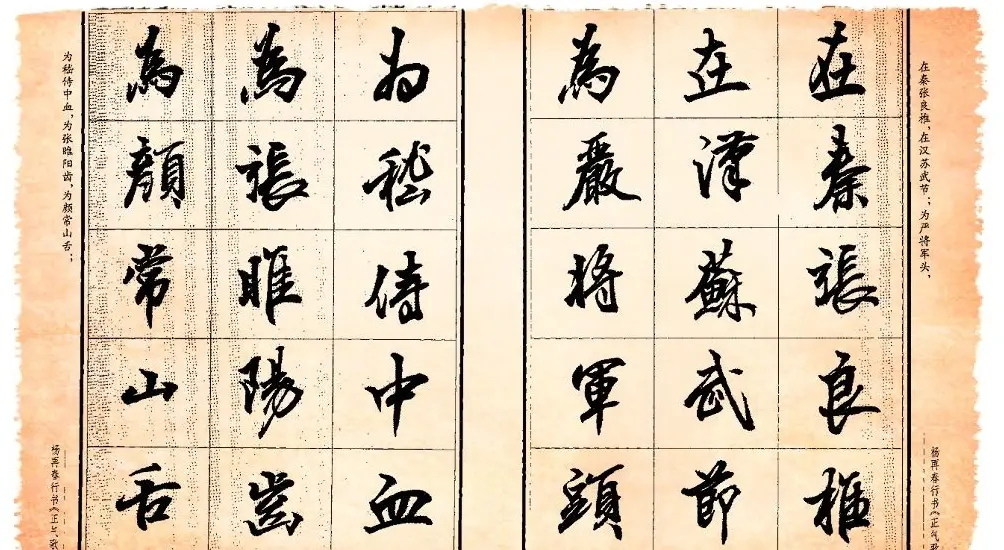 在秦张良椎,在汉苏武节;为严将军头,
杨再春行书《正气歌
在秦張良椎
在漢蘇武節
為嚴将軍頭
為嵇侍中血
為張睢陽齒
為顏常山舌
为嵇侍中血,为张睢阳齿,为颜常山舌;
杨再春行书《正气歌